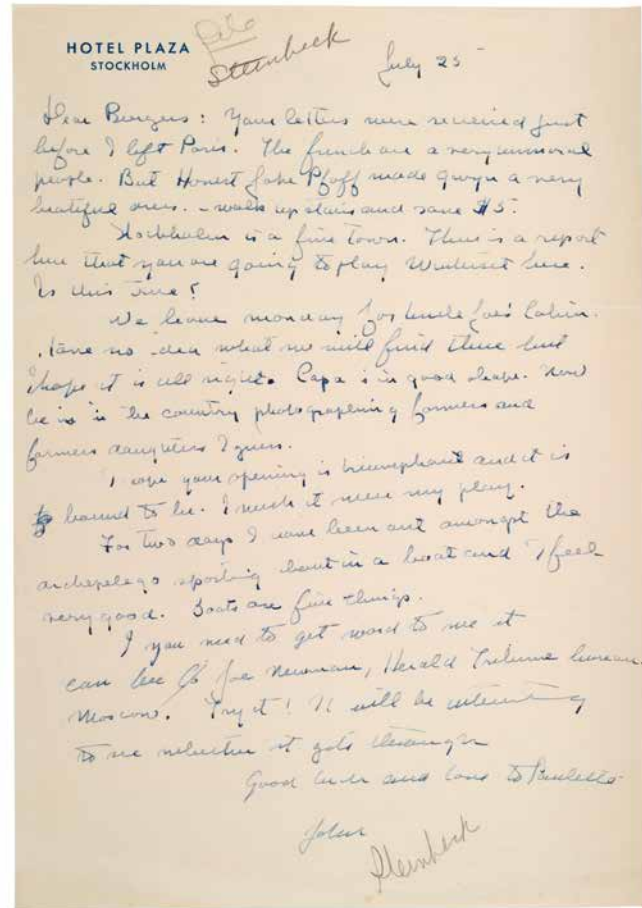 HOTEL PLAZA
STOCKHOLM
File
Steinbeck
July 25
Dear Burgess: Your letters were received just
before I left Paris. The french are a very immoral
people. But Honest Jake Pfoff made Gwyn a very
beatiful dress. – walk up stairs and save $5.
Stockholm is a fine town. There is a report
here that you are going to play Winterset here.
Is this true?
We leave monday for Uncle Joe's Cabin.
Have no idea what we will find there but
hope it is all right. Capa is in good shape. Now
he is in the country photographing farmers and
farmers daughters I guess.
I hope your opening is triumphant and it is
bound to be. I wish it were my play.
For two days I have been out amongst the
archepelego sporting about in a boat and I feel
very good. Boats are fine things.
I you need to get word to me it
can be c/o Joe Newman, Herald Tribune bureau,
Moscow. Try it! It will be interesting
to see whether it gets through
Good luck and love to Paulette
John
Steinbeck